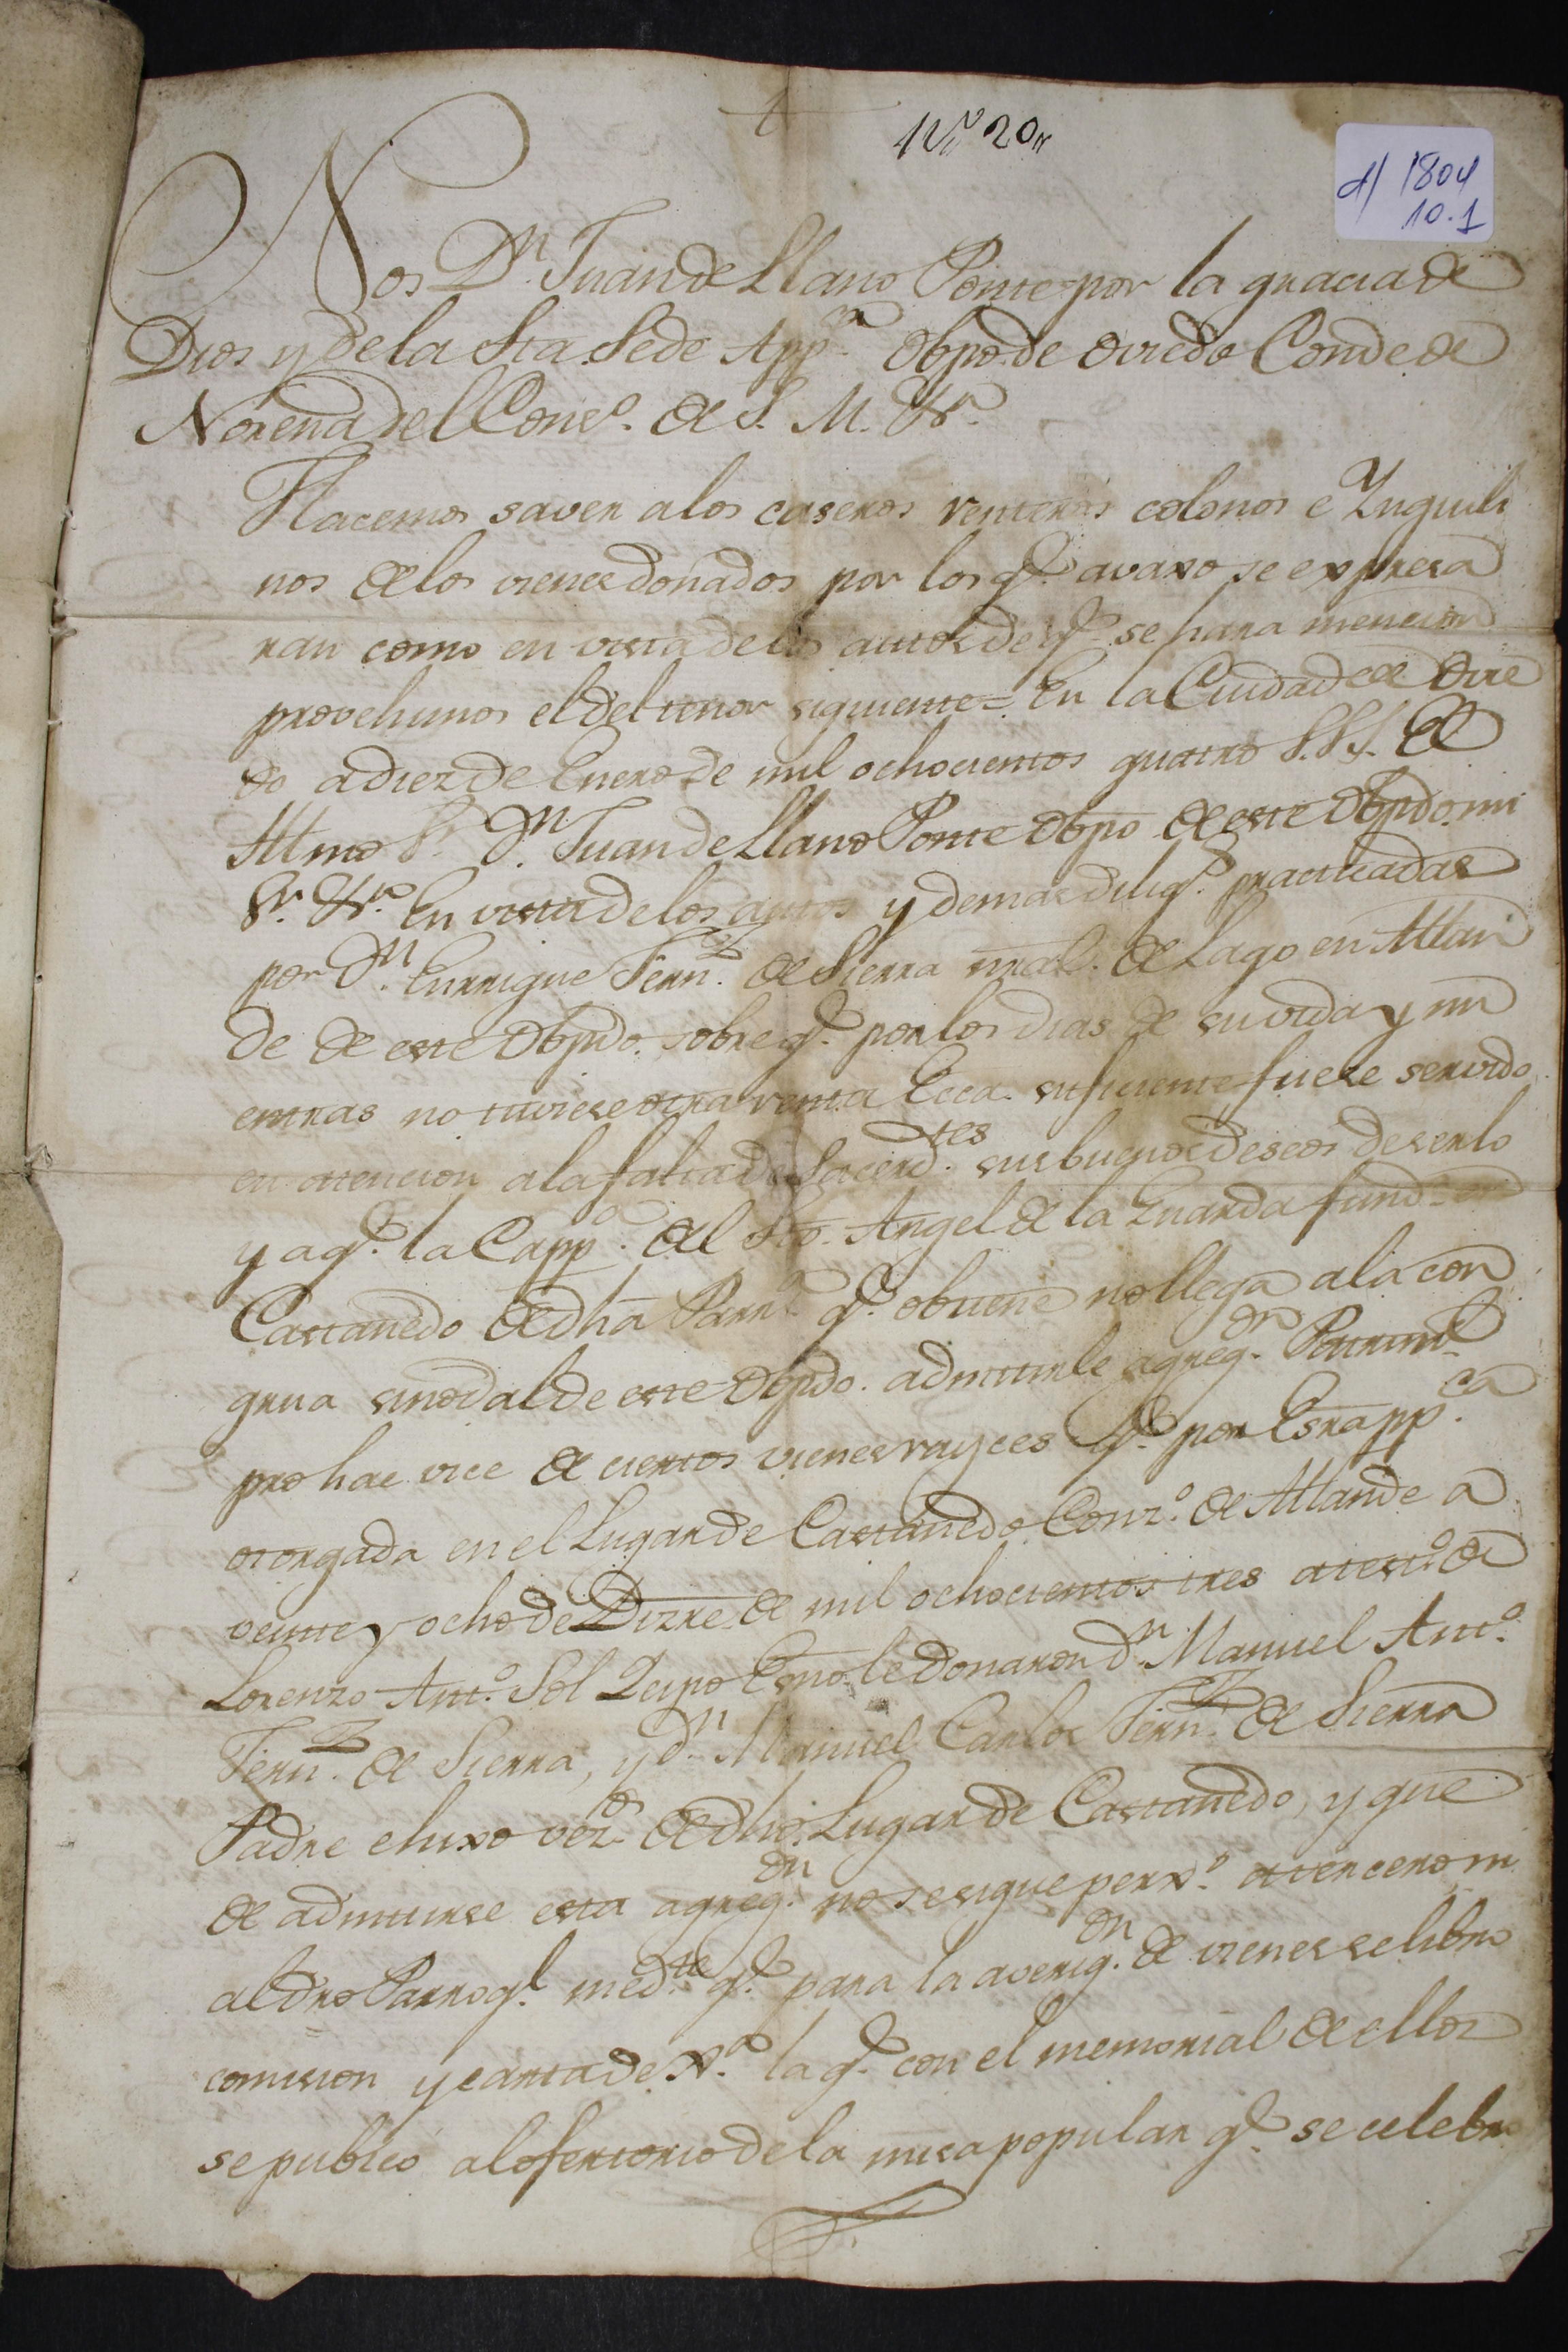 Nº 20
d) 1804
10.1
Nos Dn. Juan de Llano Ponte por la gracia de
Dios y de la Sta Sede Appca. Obpo. de Oviedo Conde de
Noreña del Conso. de S. M. &a.
Hacemos saver a los caseros renteros colonos e Ynquili
nos de los vienes donados por los qe. avaxo se expresa
ran como en vista de los autos de qe. se hara mencion
provehimos el del tenor siguiente = En la Ciudad de Ovie
do a diez de Enero de mil ochocientos quatro S.S.I. El
Illmo Sr. Dn. Juan de Llano Ponte Obpo de este Obpdo. mi
Sr. &a. En vista de los autos y demas diligs. practicadas
por Dn. Enrrique Fernz. de Sierra nral. de Lago en Allan
de de este Obpdo. sobre qe. por los dias de su vida y mi
entras no tuviese otra renta Ecca. suficiente fuese servido
en atencion a la falta de Sacerdtes. sus buenos deseos de serlo
y a qe. la Cappa. del Sto. Angel de la Guarda fund. en
Castañedo de dha Parra. qe. obtiene no llega a la con
grua sinodal de este Obpdo. admitirle agregon. Patriml.
pro hac vice de ciertos vienes rayces qe. por Esra ppca.
otorgada en el Lugar de Castañedo Conzo. de Allande a
veinte y ocho de Dizre. de mil ochocientos tres a testo. de
Lorenzo Anto. Sol Queipo Esno. le donaron dn. Manuel Anto.
Fernz. de Sierra, y dn. Manuel Carlos Fernz. de Sierra
Padre e hixo vezos. de dho Lugar de Castañedo, y que
de admitirse esta agregon. no se sigue perxo. a tercero ni
al dro Parroql. medte. qe. para la averigon. de vienes se libro
comision y carta de Xa. la qe. con el memorial de ellos
se publicó al ofertorio de la misa popular qe. se celebro